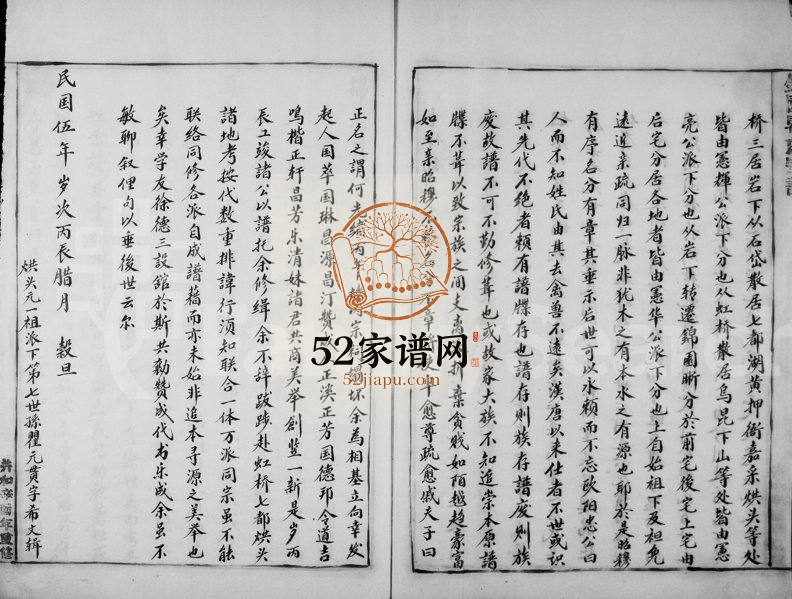 桥三居岩下从石岱散居七都湖黄押衙嘉采烘头等处
皆由憲輝公派下分也从虹桥散居鸟昆下山等處皆由憲
亮公派下分也从岩下转遷錦園晣分於前宅後宅上宅由
后宅分居各地者皆由憲华公派下分也上自始祖下及袒免
遠近亲疏同归一脉非犹木之有本水之有源也耶於是昭穆
有序名分有章其垂示后世可以永赖而不忘欧阳忠公曰
人而不知姓氏由其去禽兽不遠矣漢唐以来仕者不世或識
其先代不绝者頼有譜牒存也譜存則族存譜废則族
废故譜不可不勤修葺也或故家大族不知追崇本原譜
牒不葺以致宗族之间丈 弃貧贱如陌越趋豪富
如至亲昭穆 愈尊疏愈戚夫子曰
正名之謂何 坏余為相基立向幸发
起人国萃国琳昌源昌汀赞成 正漢正芳国德邦令道吉
鸣楷正轩昌芳乐清妹諸君共商美举創竖一新是岁丙
辰工竣諸公以譜托余修缉余不辞跋踄赴虹桥七都烘头
諸地考按代数重排諱行須知联合一体万派同宗虽不能
联络同修各派自成譜藉而亦未始非追本寻源之美举也
矣幸学友徐德三設館於斯共勷贊成代书乐成余虽不
敏聊叙俚句以垂後世云尔
民国伍年岁次丙辰腊月 穀旦
烘头元一祖派下第七世孫瞿元贯字希文辑
52家谱网
52jiapu.com